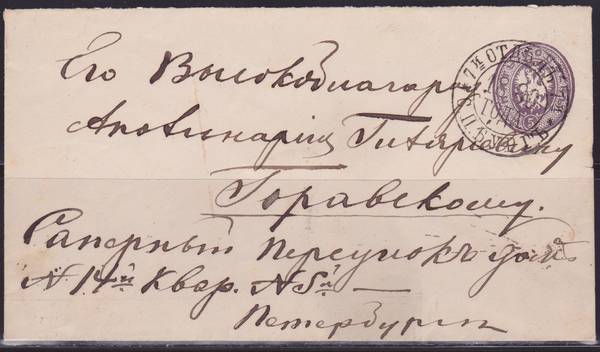 Его Высокоблагородiю
Аполинарiю Гиляровичу
Горавскому.
Саперный переулокъ домъ
N 14й Квар. N 5й —
Петербургъ